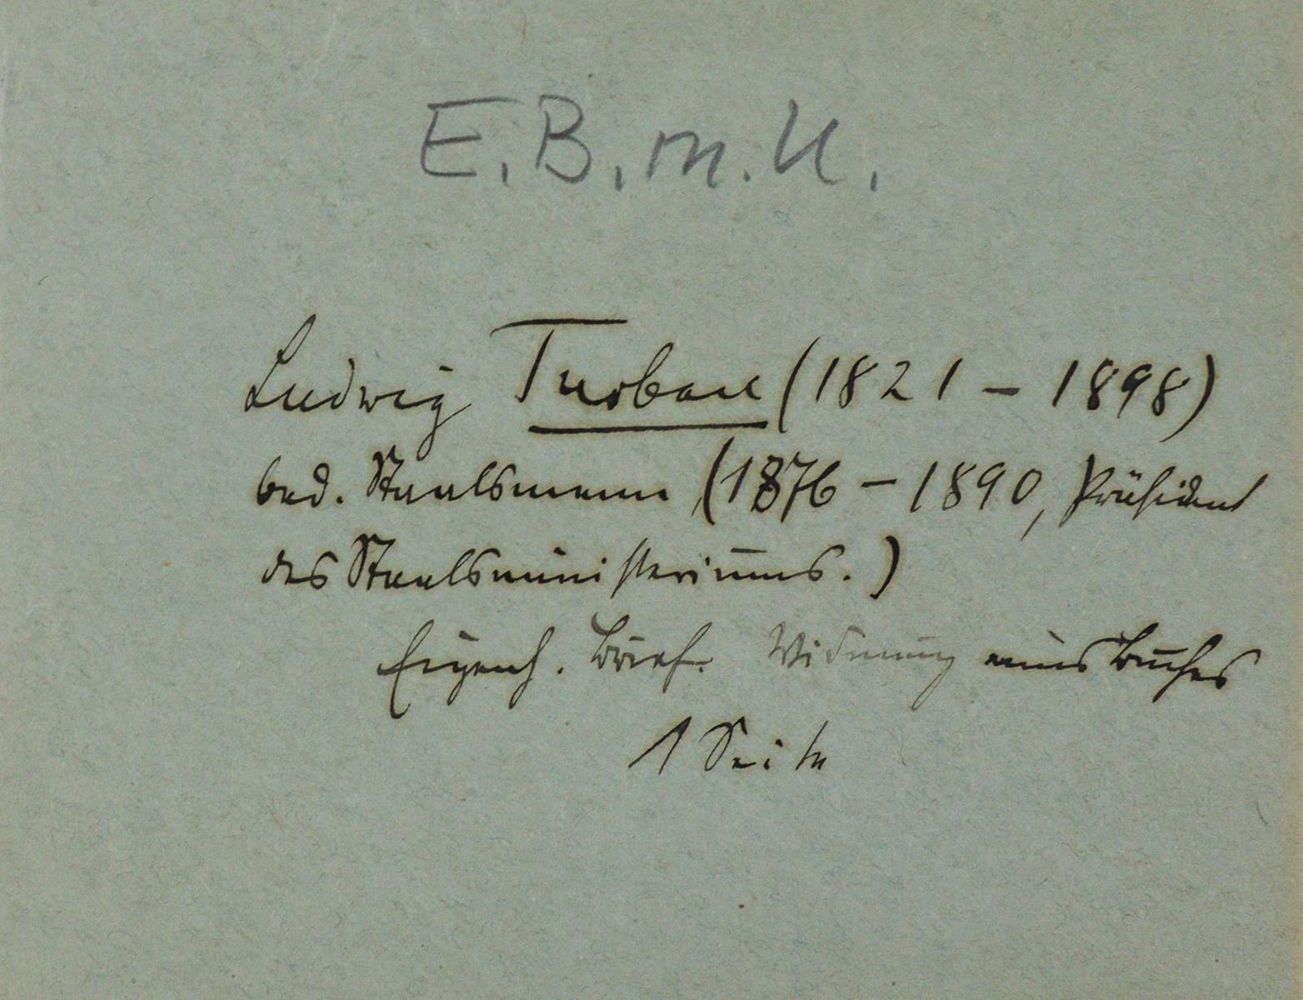 E. B. m. U.
Ludwig Turban (1821 - 1898)
bad. Staatsmann (1876 - 1890, Präsident
des Staatsministeriums.)
Eigenh. Brief. Widmung eines Buches
1 Seite